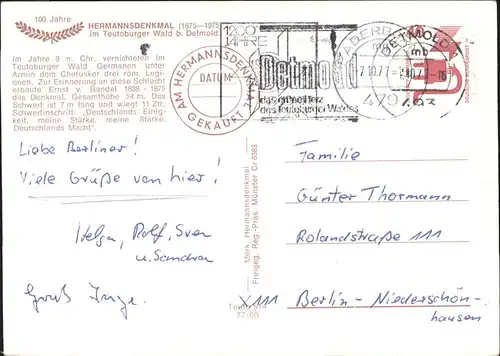 100 Jahre
HERMANNSDENKMAL (1875-1975)
im Teutoburger Wald b. Detmold.
Im Jahre 9 n. Chr. vernichteten im
Teutoburger Wald Germanen unter
Armin dem Cherusker drei röm. Legi-
onen. Zur Erinnerung an diese Schlacht
erbaute Ernst v. Bandel 1838 - 1875
das Denkmal. Gesamthöhe 54 m. Das
Schwert ist 7 m lang und wiegt 11 Ztr.
Schwertinschrift: „Deutschlands Einig-
keit meine Stärke, meine Stärke
Deutschlands Macht".
AM HERMANNSDENKMAL
DATUM
GEKAUFT
1200
JAHRE
Detmold
das grüne Herz
des Teutoburger Waldes
DETMOLD
mb
Liebe Berliner!
Viele Grüße von hier!
Helga, Rolf, Sven
u. Sandra
Gruß Inge.
Merk. Hermannsdenkmal
Freigeg. Reg.-Präs. Münster Cr 6383
Familie
Günter Thormann
Rolandstraße 111
X 111 Berlin - Niederschön-
hausen